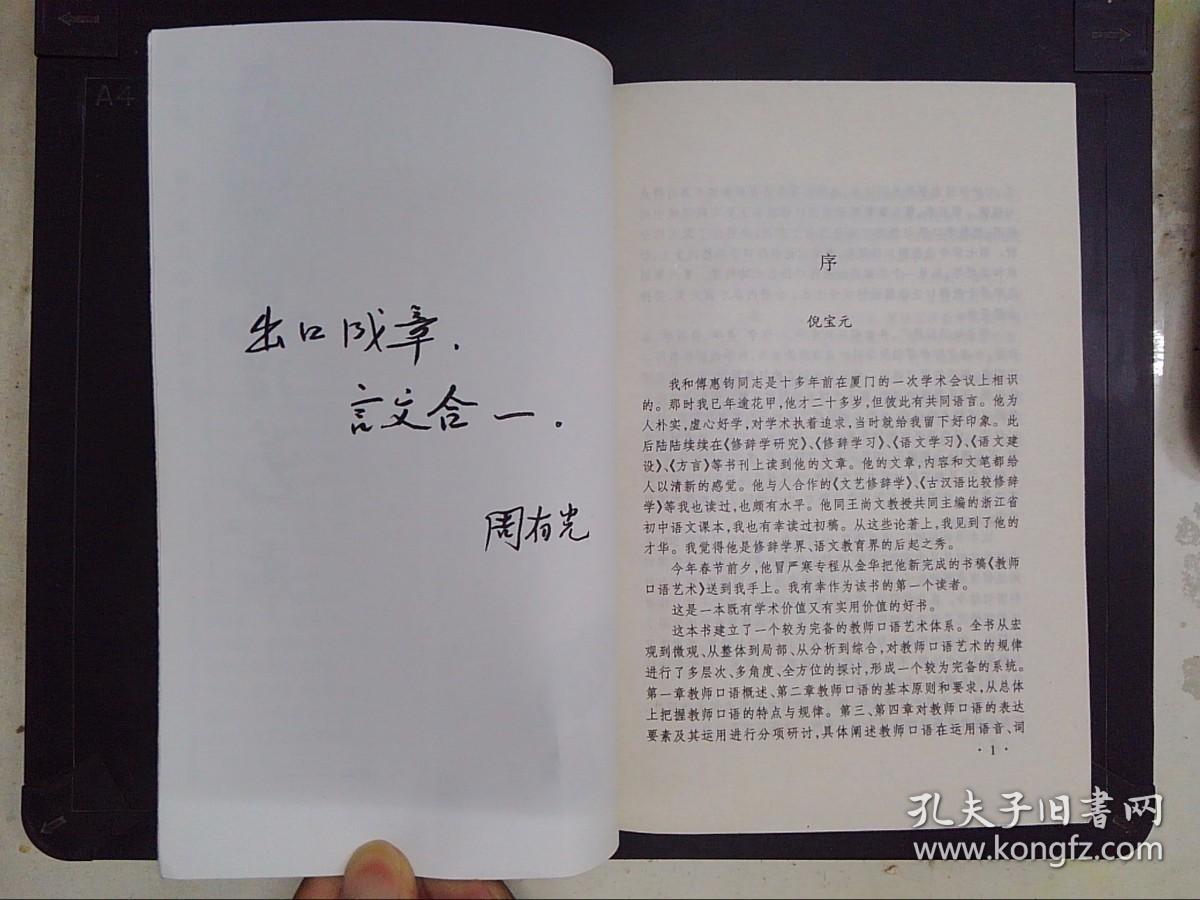 A4
出口成章.
言文合一.
周有光
序
倪宝元
我和傅惠钧同志是十多年前在厦门的一次学术会议上相识
的。那时我已年逾花甲,他才二十多岁,但彼此有共同语言。他为
人朴实,虚心好学,对学术执着追求,当时就给我留下好印象。此
后陆陆续续在《修辞学研究》、《修辞学习》、《语文学习》、《语文建
设》、《方言》等书刊上读到他的文章。他的文章,内容和文笔都给
人以清新的感觉。他与人合作的《文艺修辞学》、《古汉语比较修辞
学》等我也读过,也颇有水平。他同王尚文教授共同主编的浙江省
初中语文课本,我也有幸读过初稿。从这些论著上,我见到了他的
才华。我觉得他是修辞学界、语文教育界的后起之秀。
今年春节前夕,他冒严寒专程从金华把他新完成的书稿《教师
口语艺术》送到我手上。我有幸作为该书的第一个读者。
这是一本既有学术价值又有实用价值的好书。
这本书建立了一个较为完备的教师口语艺术体系。全书从宏
观到微观、从整体到局部、从分析到综合,对教师口语艺术的规律
进行了多层次、多角度、全方位的探讨,形成一个较为完备的系统。
第一章教师口语概述、第二章教师口语的基本原则和要求,从总体
上把握教师口语的特点与规律。第三、第四章对教师口语的表达
要素及其运用进行分项研讨,具体阐述教师口语在运用语音、词
·1·
孔夫子旧书网
www.kongfz.com